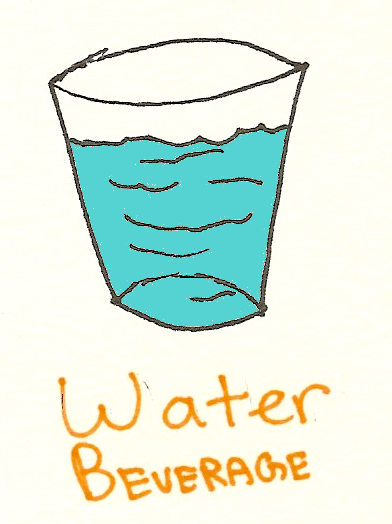 Water
BEVERAGE